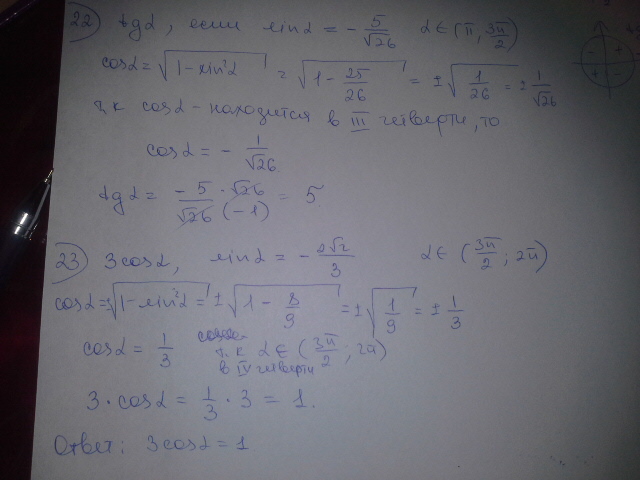 22) tgα, если sinα = - 5/√26 α∈(π, 3π/2)
cosα = √(1 - sin²α) = √(1 - 25/26) = ±√(1/26) = ± 1/√26
т.к cosα - находится в III четверти, то
cosα = - 1/√26.
tgα = (-5 · √26)/(√26 (-1)) = 5.
23) 3cosα, sinα = - 2√2/3 α∈(3π/2; 2π)
cosα = ±√(1 - sin²α) = ±√(1 - 8/9) = ±√(1/9) = ± 1/3
cosα = 1/3 т.к α∈(3π/2; 2π)
в IV четверти
3 · cosα = 1/3 · 3 = 1.
Ответ: 3cosα = 1